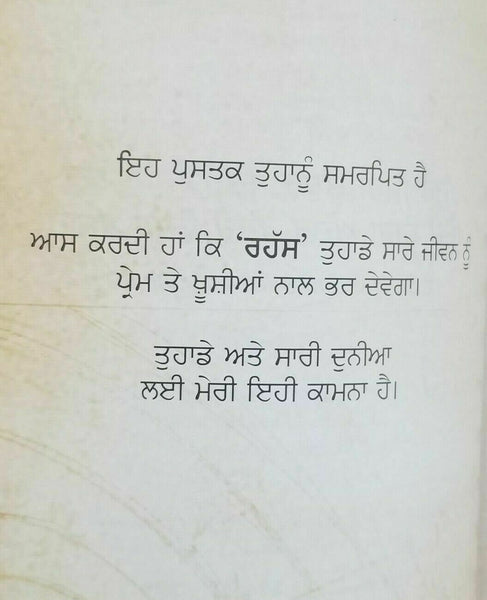 ਇਹ ਪੁਸਤਕ ਤੁਹਾਨੂੰ ਸਮਰਪਿਤ ਹੈ
ਆਸ ਕਰਦੀ ਹਾਂ ਕਿ ‘ਰਹੱਸ’ ਤੁਹਾਡੇ ਸਾਰੇ ਜੀਵਨ ਨੂੰ
ਪ੍ਰੇਮ ਤੇ ਖ਼ੂਸ਼ੀਆਂ ਨਾਲ ਭਰ ਦੇਵੇਗਾ।
ਤੁਹਾਡੇ ਅਤੇ ਸਾਰੀ ਦੁਨੀਆ
ਲਈ ਮੇਰੀ ਇਹੀ ਕਾਮਨਾ ਹੈ।